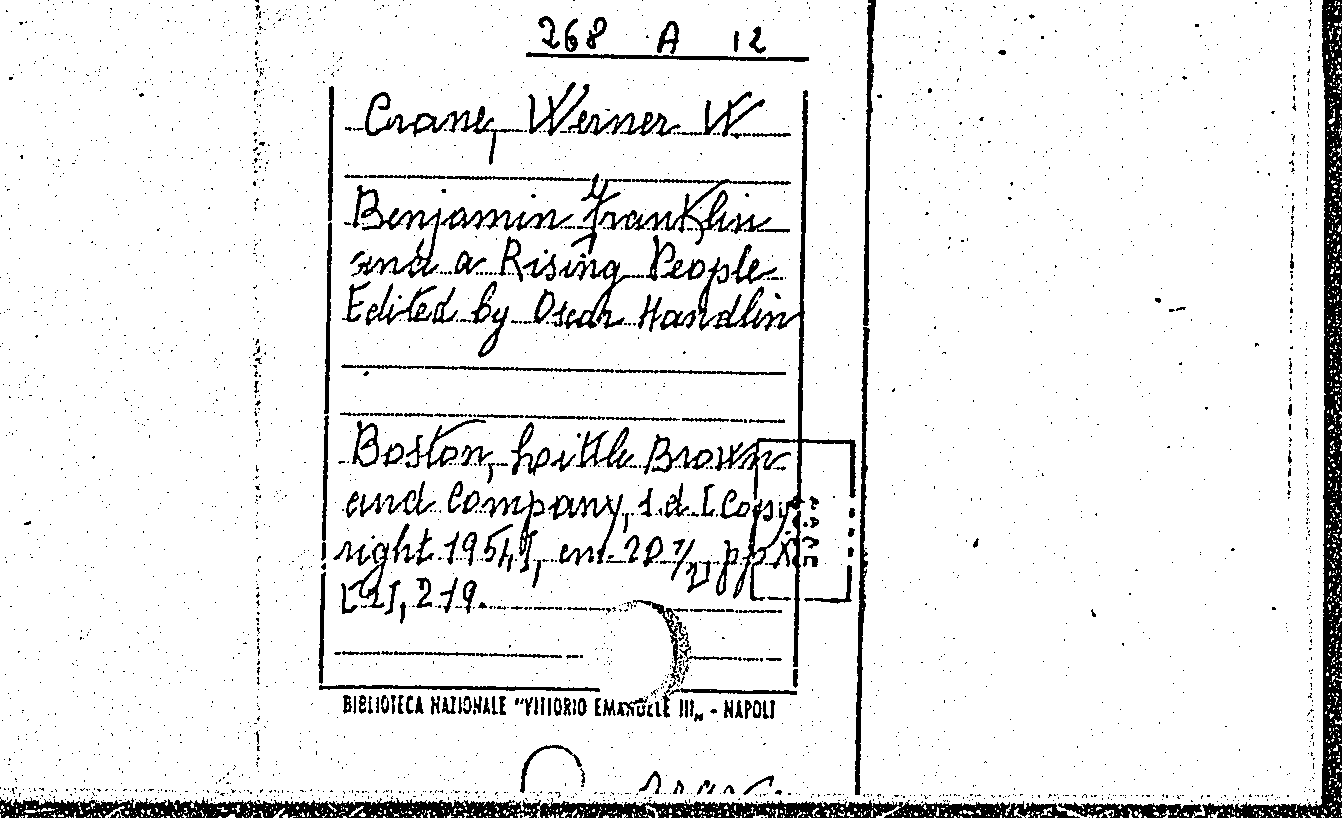 268 A 12
Crane, Werner W
Benjamin Franklin
and a Rising People
Edited by Oscar Handlin
Boston, Little Brown
and Company, s.d [Copy
right 1954], cm. 20
[2], 219.
BIBLIOTECA NAZIONALE "VITTORIO EMANUELE III„ - NAPOLI